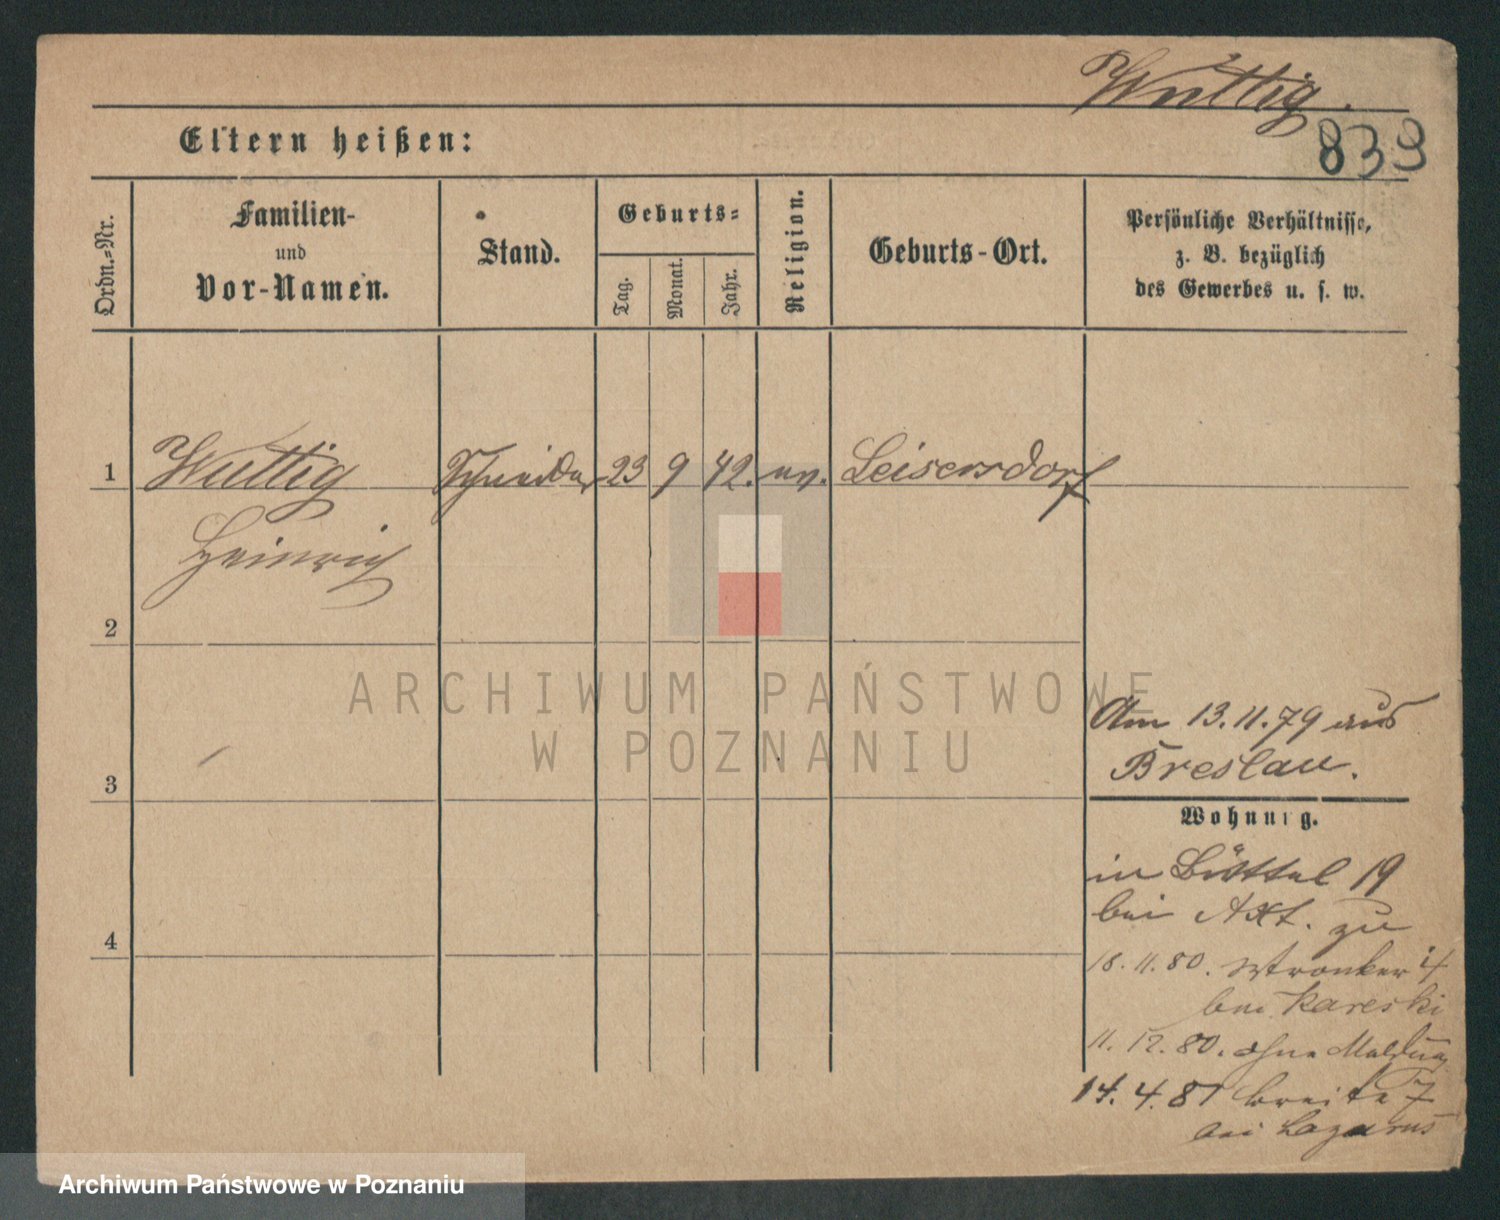 Wuttig.
833
Eltern heißen:
Ordn.-Nr.
Familien-
und
Vor-Namen.
Stand.
Geburts-
Tag.
Monat.
Jahr.
Religion.
Geburts-Ort.
Persönliche Verhältnisse,
z. B. bezüglich
des Gewerbes u. s. w.
1 Wuttig Schneider 23 9 42. ev. Leisersdorf
Heinrich
2
ARCHIWUM PAŃSTWOWE
W POZNANIU
Am 13.11.79 aus
Breslau.
3
Wohnung.
in Büttel 19
bei Axt. zu
4
18.11.80. Wronker 4
bei Kareski
11.12.80. ohne Meldung
14.4.81 Breite 7
bei Lazarus
Archiwum Państwowe w Poznaniu